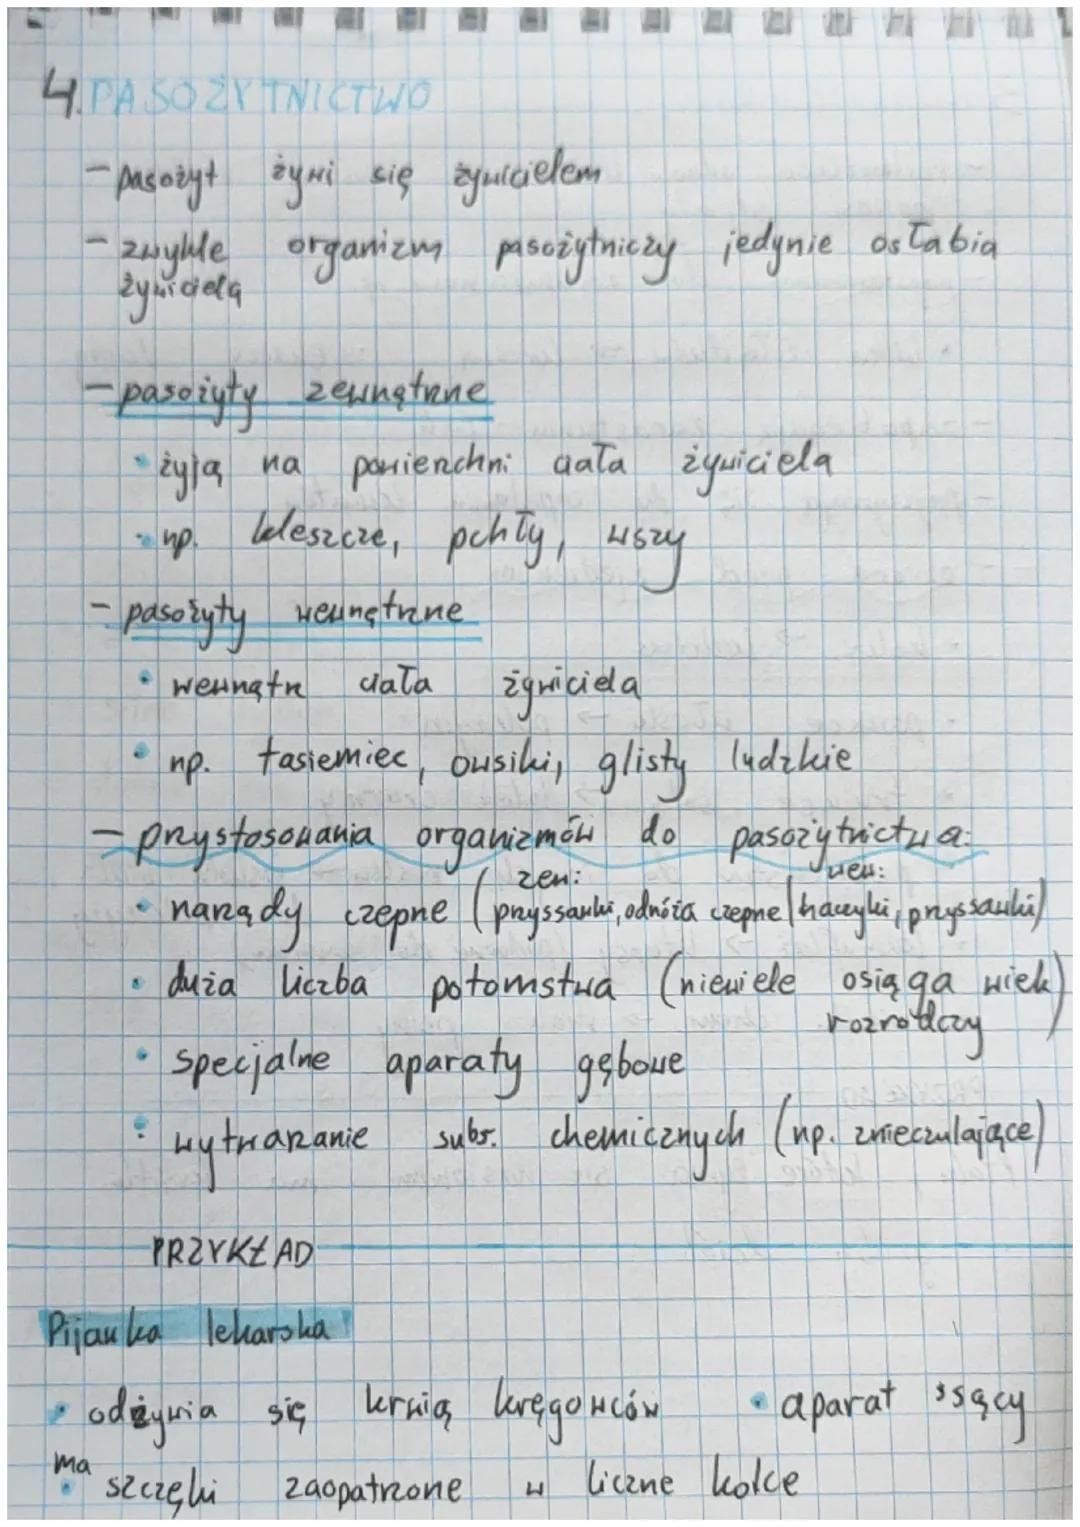 4. PASOŻYTNICTWO
- pasożyt żywi się żywicielem
- zwykle organizm pasożytniczy jedynie osłabia
żywiciela
- pasożyty zewnętrzne
• żyją na powierzchni ciała żywiciela
• np. kleszcze, pchły, wszy
- pasożyty wewnętrzne
• wewnątrz ciała żywiciela
• np. tasiemiec, owsiki, glisty ludzkie
- przystosowania organizmów do pasożytnictwa:
zew: wew:
• narządy czepne (przyssawki, odnóża czepne | haczyki, przyssawki)
• duża liczba potomstwa (niewiele osiąga wiek
rozrodczy)
• specjalne aparaty gębowe
• wytwarzanie subs. chemicznych (np. znieczulające)
PRZYKŁAD
Pijawka lekarska
• odżywia się krwią kręgowców • aparat ssący
ma
• szczęki zaopatrzone w liczne kolce